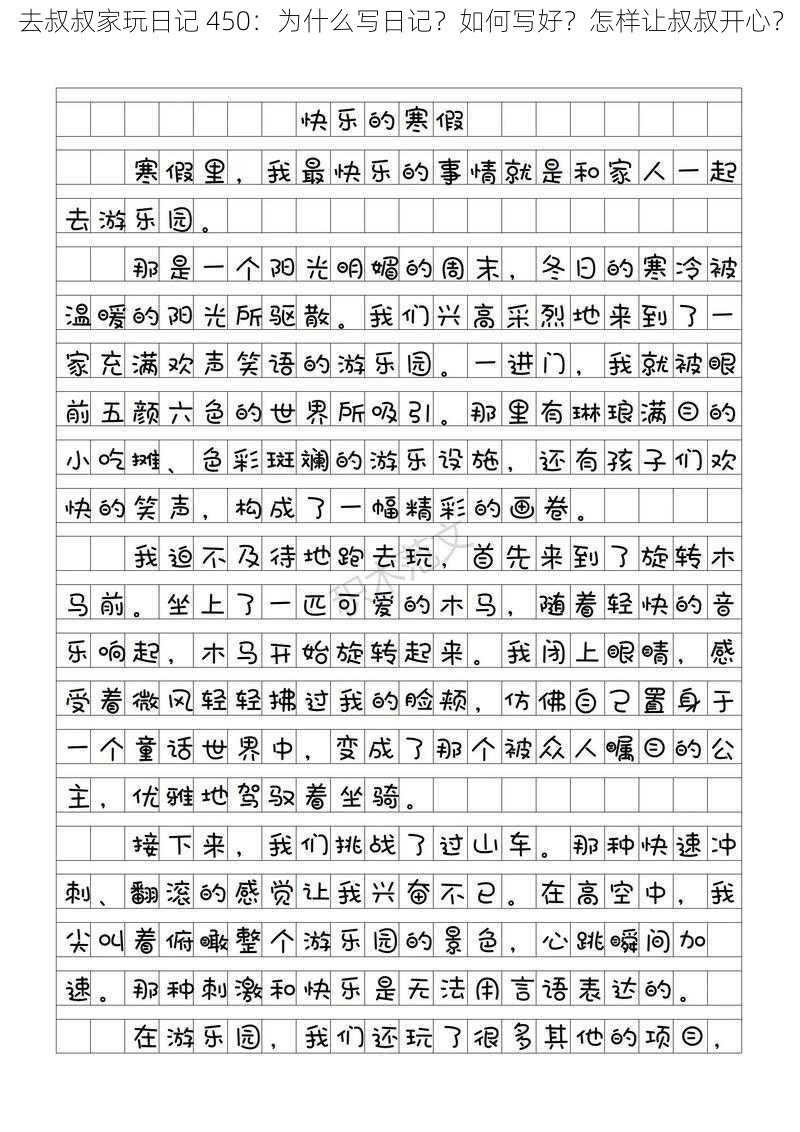 去叔叔家玩日记 450：为什么写日记？如何写好？怎样让叔叔开心？
快乐的寒假
寒假里，我最快乐的事情就是和家人一起
去游乐园。
那是一个阳光明媚的周末，冬日的寒冷被
温暖的阳光所驱散。我们兴高采烈地来到了一
家充满欢声笑语的游乐园。一进门，我就被眼
前五颜六色的世界所吸引。那里有琳琅满目的
小吃摊、色彩斑斓的游乐设施，还有孩子们欢
快的笑声，构成了一幅精彩的画卷。
我迫不及待地跑去玩，首先来到了旋转木
马前。坐上了一匹可爱的木马，随着轻快的音
乐响起，木马开始旋转起来。我闭上眼睛，感
受着微风轻轻拂过我的脸颊，仿佛自己置身于
一个童话世界中，变成了那个被众人瞩目的公
主，优雅地驾驭着坐骑。
接下来，我们挑战了过山车。那种快速冲
刺、翻滚的感觉让我兴奋不已。在高空中，我
尖叫着俯瞰整个游乐园的景色，心跳瞬间加
速。那种刺激和快乐是无法用言语表达的。
在游乐园，我们还玩了很多其他的项目，
积木范文